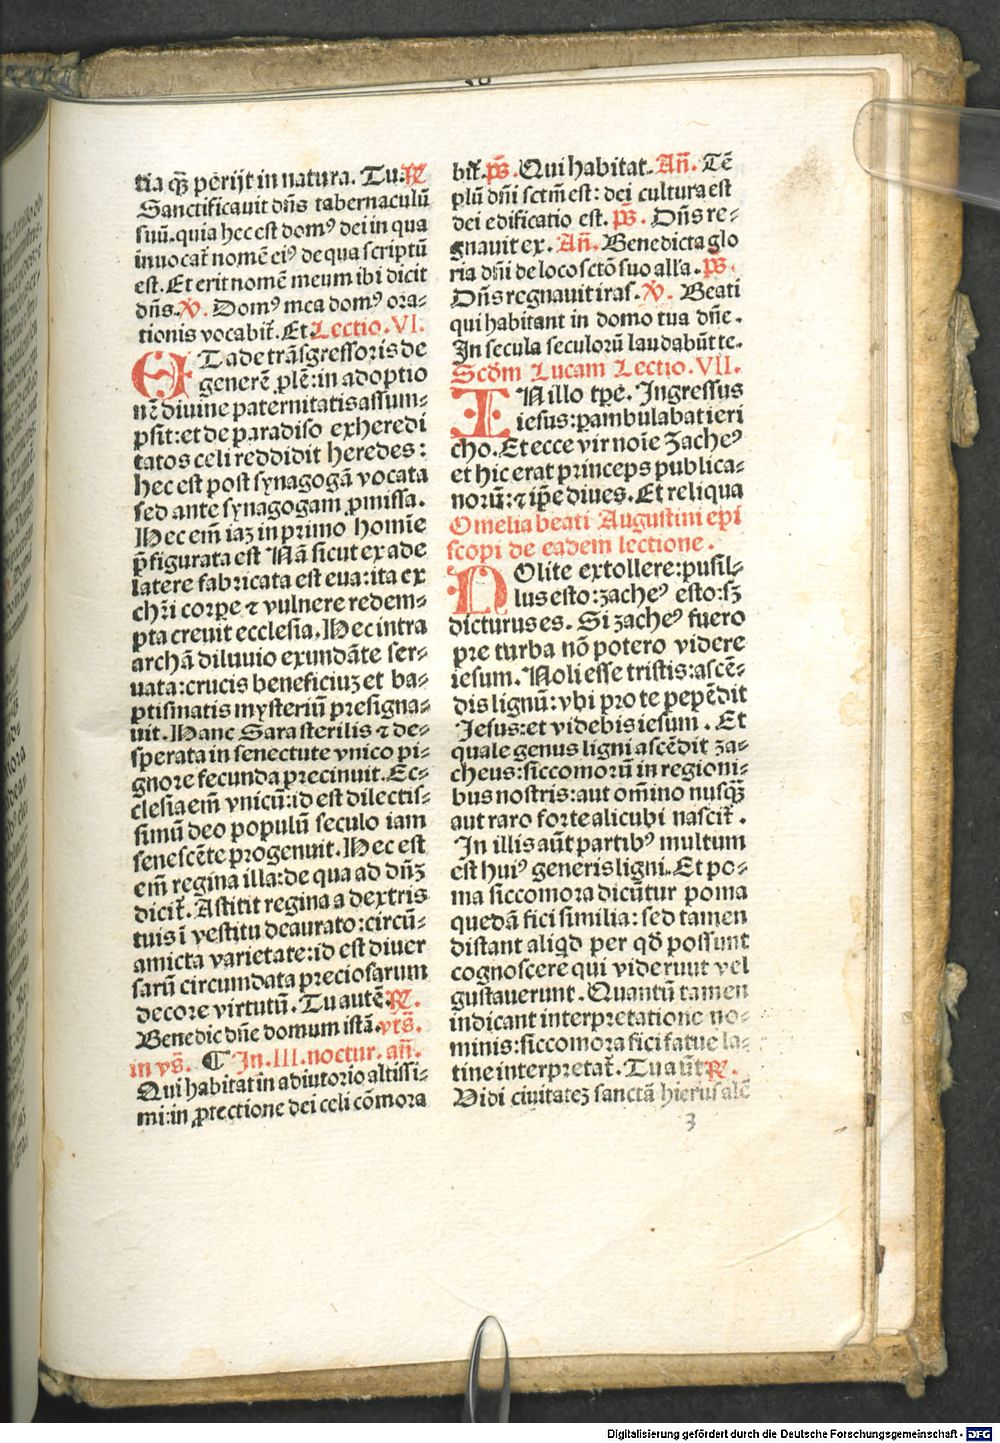 tia qꝫ perijt in natura. Tu. ℟
Sanctificauit dñs tabernaculũ
suũ. quia hec est domꝰ dei in qua
inuocat̃ nomẽ eiꝰ de qua scriptũ
est. Et erit nomẽ meum ibi dicit
dñs. ℣. Domꝰ mea domꝰ ora⸗
tionis vocabit̃. Et. Lectio. VI.
ETa de trãsgressoris de
generẽ ꝓlẽ: in adoptio
nẽ diuine paternitatis assum⸗
psit: et de paradiso exheredi
tatos celi reddidit heredes:
hec est post synagogã vocata
sed ante synagogam ꝓmissa.
Hec em̃ iaꝫ in primo homĩe
p̃figurata est Nã sicut ex ade
latere fabricata est eua: ita ex
chr̃i corpe ⁊ vulnere redem⸗
pta creuit ecclesia. Hec intra
archã diluuio exundãte ser⸗
uata: crucis beneficiuꝫ et ba⸗
ptismatis mysteriũ presigna⸗
uit. Hanc Sara sterilis ⁊ de⸗
sperata in senectute vnico pi⸗
gnore fecunda precinuit. Ec⸗
clesia em̃ vnicũ: id est dilectis⸗
simũ deo populũ seculo iam
senescẽte progenuit. Hec est
em̃ regina illa: de qua ad dñꝫ
dicit̃. Astitit regina a dextris
tuis ĩ vestitu deaurato: circũ⸗
amicta varietate: id est diuer
sarũ circumdata preciosarum
decore virtutũ. Tu autẽ. ℟.
Benedic dñe domum istã. vts̃.
in ps̃. ¶ In. III. noctur. añ.
Qui habitat in adiutorio altissi⸗
mi: in ꝓtectione dei celi cõmora
bit̃. ps̃. Qui habitat. Añ. Tẽ
plũ dñi sctm̃ est: dei cultura est
dei edificatio est. ps̃. Dñs re⸗
gnauit ex. Añ. Benedicta glo
ria dñi de loco sctõ suo all'a. ps̃.
Dñs regnauit iras. ℣. Beati
qui habitant in domo tua dñe.
In secula seculorũ laudabũt te.
Scd̃m Lucam Lectio. VII.
IN illo tꝑe. Ingressus
iesus: ꝑambulabat ieri
cho. Et ecce vir noĩe zacheꝰ
et hic erat princeps publica⸗
norũ: ⁊ ip̃e diues. Et reliqua
Omelia beati Augustini epĩ
scopi de eadem lectione.
NOlite extollere: pusil⸗
lus esto: zacheꝰ esto: sꝫ
dicturus es. Si zacheꝰ fuero
pre turba nõ potero videre
iesum. Noli esse tristis: ascẽ⸗
dis lignũ: vbi pro te pepẽdit
Jesus: et videbis iesum. Et
quale genus ligni ascẽdit za⸗
cheus: siccomorũ in regioni⸗
bus nostris: aut om̃ino nusqꝫ
aut raro forte alicubi nascit̃.
In illis aũt partibꝰ multum
est huiꝰ generis ligni. Et po⸗
ma siccomora dicũtur poma
quedã fici similia: sed tamen
distant aliqd̃ per qd̃ possunt
cognoscere qui viderunt vel
gustauerunt. Quantũ tamen
indicant interpretatione no⸗
minis: siccomora fici fatue la⸗
tine interpretat̃. Tu aũt ℟.
Vidi ciuitateꝫ sanctã hierusalẽ
3
Digitalisierung gefördert durch die Deutsche Forschungsgemeinschaft - DFG